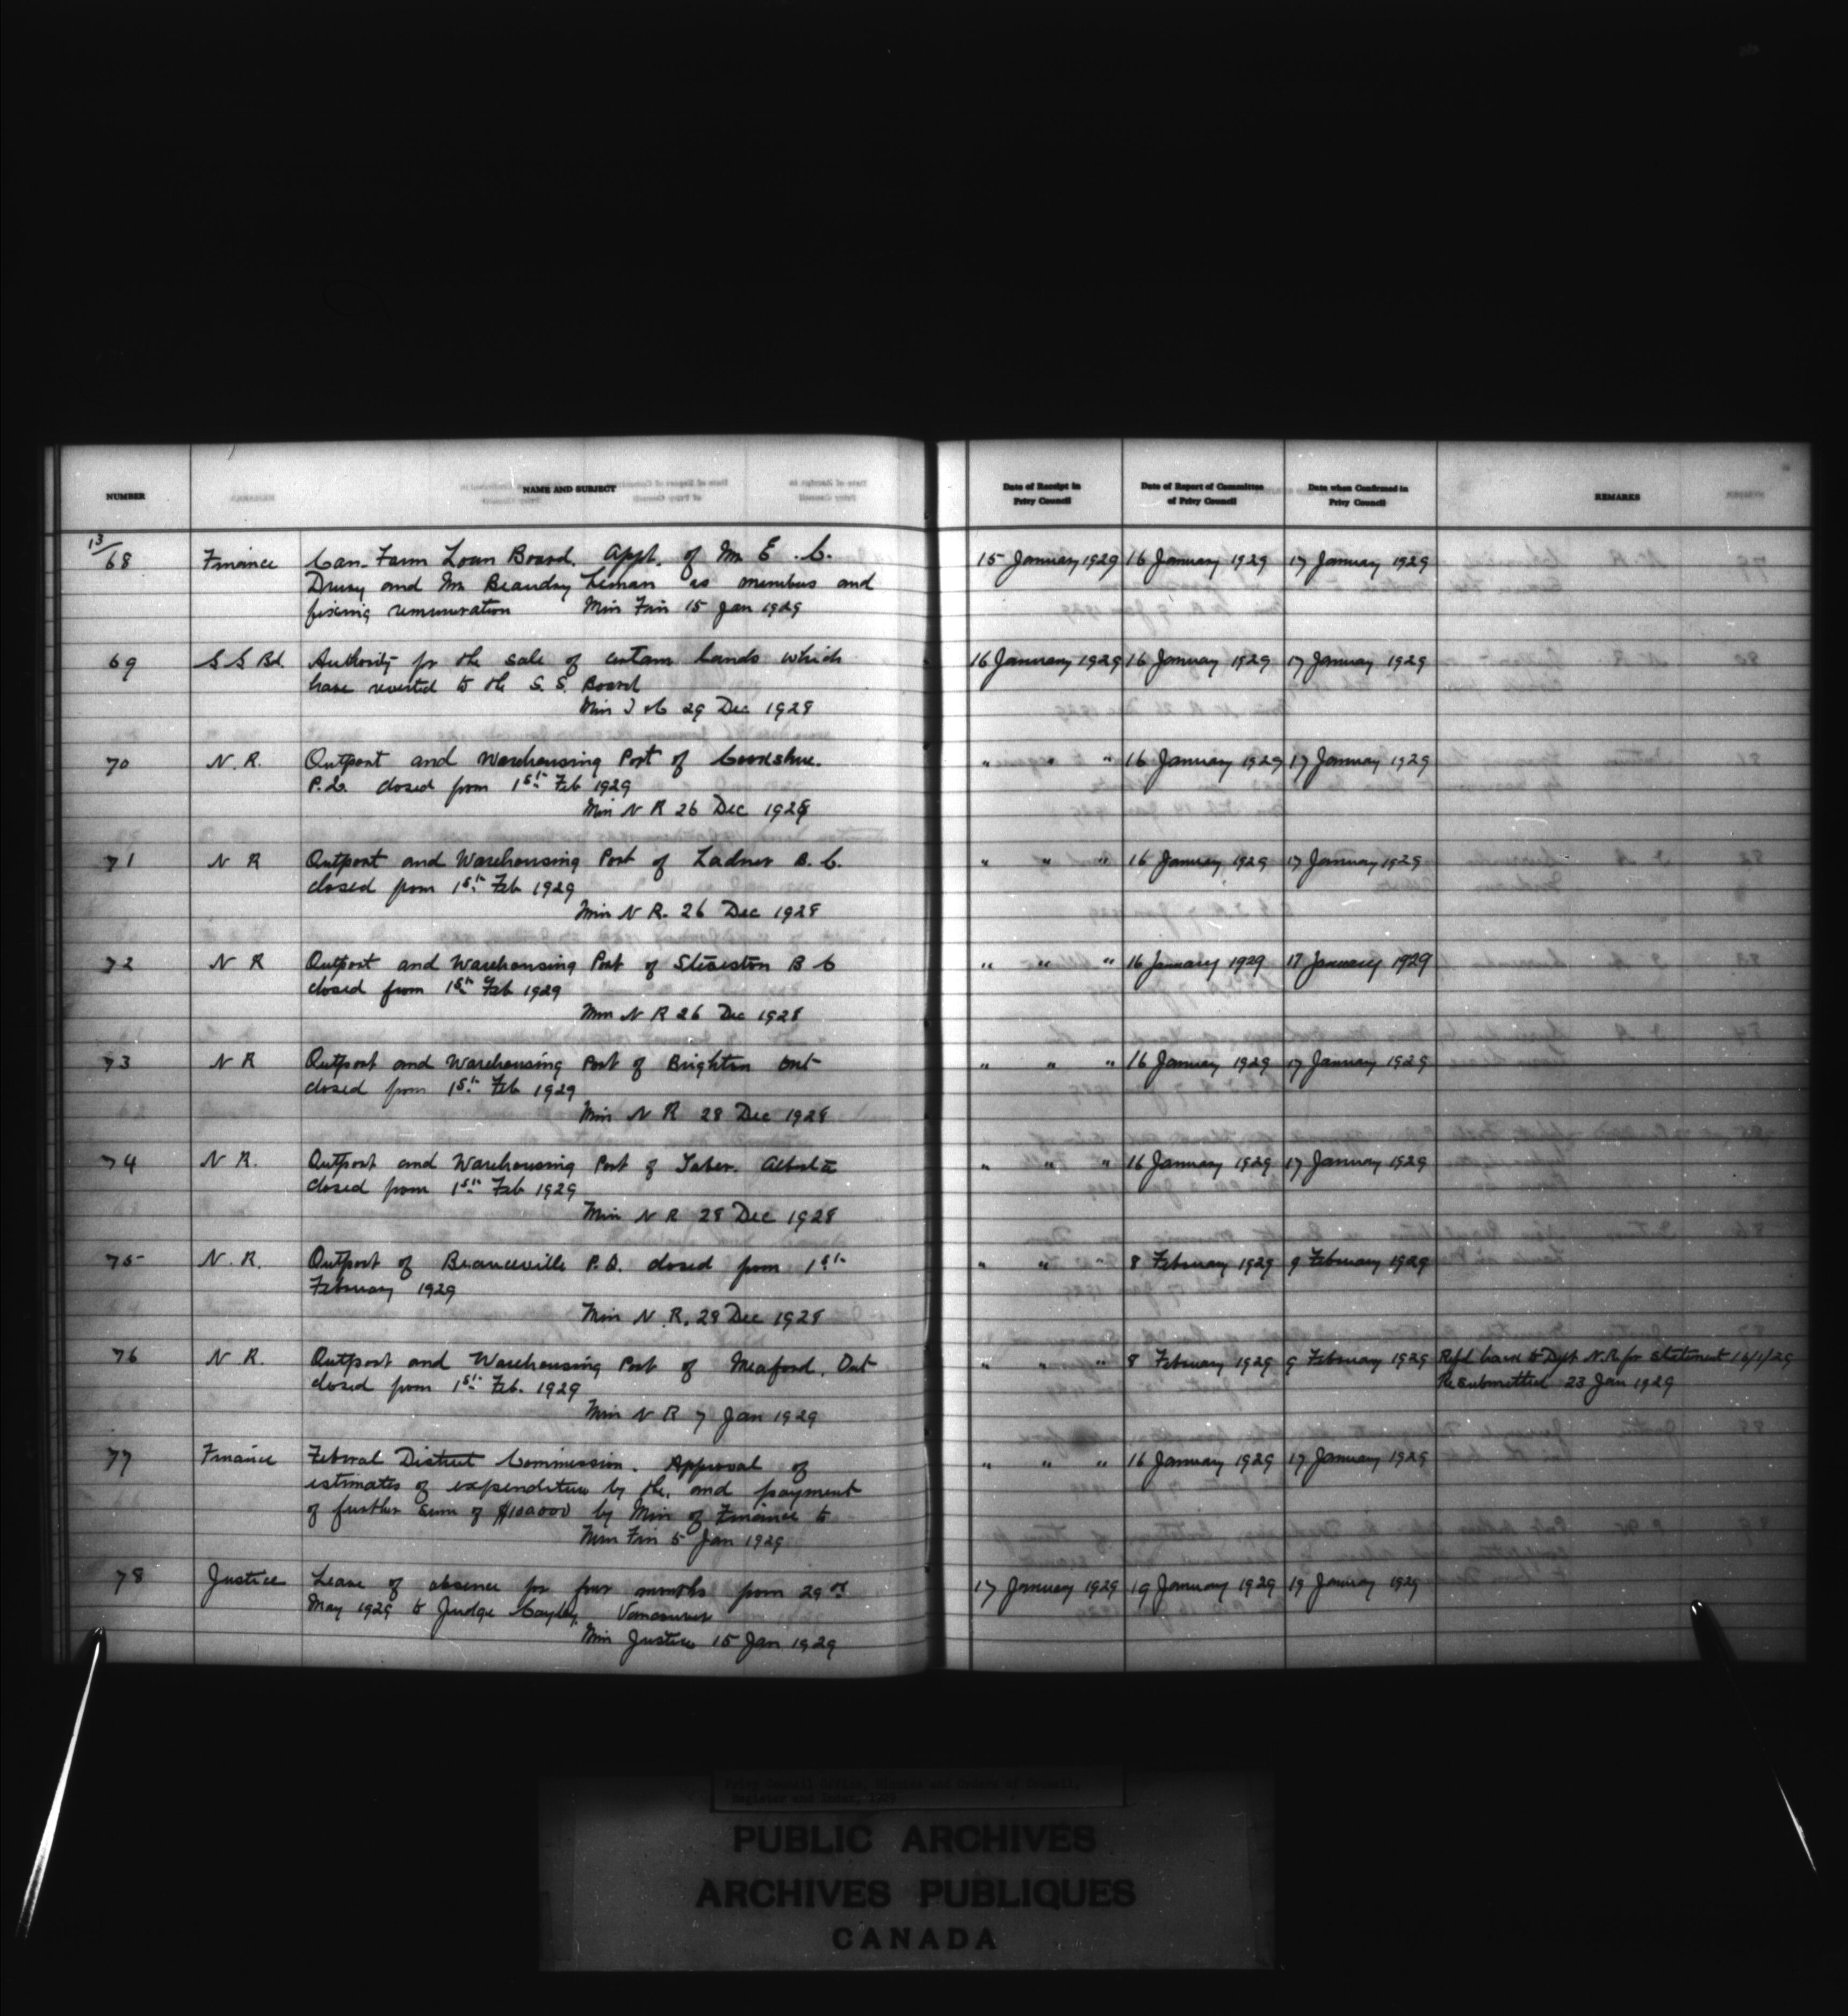 NUMBER NAME AND SUBJECT Date of Receipt in Privy Council Date of Report of Committee of Privy Council Date when Confirmed in Privy Council REMARKS
13/68 Finance Can. Farm Loan Board. Appt. of Mr. E. C. 15 January 1929 16 January 1929 17 January 1929
Drury and Mr. Beaudry Leman as members and
fixing remuneration Min Fin 15 Jan 1929
69 S S Bd. Authority for the sale of certain lands which 16 January 1929 16 January 1929 17 January 1929
have reverted to the S. S. Board
Min I & C 29 Dec 1928
70 N. R. Outport and Warehousing Port of Cookshire. " " " 16 January 1929 17 January 1929
P.Q. closed from 1st Feb 1929
Min N R 26 Dec 1928
71 N R Outport and Warehousing Port of Ladner B. C. " " " 16 January 1929 17 January 1929
closed from 1st Feb 1929
Min N R. 26 Dec 1928
72 N R Outport and Warehousing Port of Steveston B C " " " 16 January 1929 17 January 1929
closed from 1st Feb 1929
Min N R 26 Dec 1928
73 N R Outport and Warehousing Port of Brighton Ont " " " 16 January 1929 17 January 1929
closed from 1st Feb 1929
Min N R 28 Dec 1928
74 N R. Outport and Warehousing Port of Taber. Alberta " " " 16 January 1929 17 January 1929
closed from 1st Feb 1929
Min N R 28 Dec 1928
75 N. R. Outport of Beauceville P.Q. closed from 1st " " " 8 February 1929 9 February 1929
February 1929
Min N. R. 28 Dec 1928
76 N R. Outport and Warehousing Port of Meaford. Ont " " " 8 February 1929 9 February 1929 Refd back to Dept N.R. for statement 16/1/29
closed from 1st Feb. 1929 Resubmitted 23 Jan 1929
Min N R 7 Jan 1929
77 Finance Federal District Commission. Approval of " " " 16 January 1929 17 January 1929
estimates of expenditure by the, and payment
of further sum of $100000 by Min of Finance to
Min Fin 5 Jan 1929
78 Justice Leave of absence for four months from 29th 17 January 1929 19 January 1929 19 January 1929
May 1929 to Judge Cayley, Vancouver
Min Justice 15 Jan 1929
Privy Council Office, Minutes and Orders in Council,
Register and Index, 1929
PUBLIC ARCHIVES
ARCHIVES PUBLIQUES
CANADA